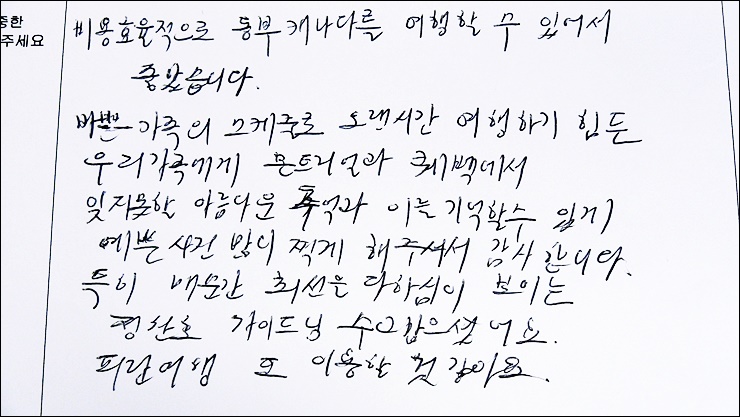 중한
주세요
비용효율적으로 동부캐나다를 여행할 수 있어서
좋았습니다.
바쁜 가족의 스케줄로 오랜시간 여행하기 힘든
우리가족에게 몬트리얼과 퀘백에서
잊지못할 아름다운 추억과 이를 기억할수 있게
예쁜 사진 많이 찍게 해주셔서 감사합니다.
특히 매순간 최선을 다하심이 보이는
가이드님 수고많으셨어요.
파란여행 또 이용할 것 같아요.